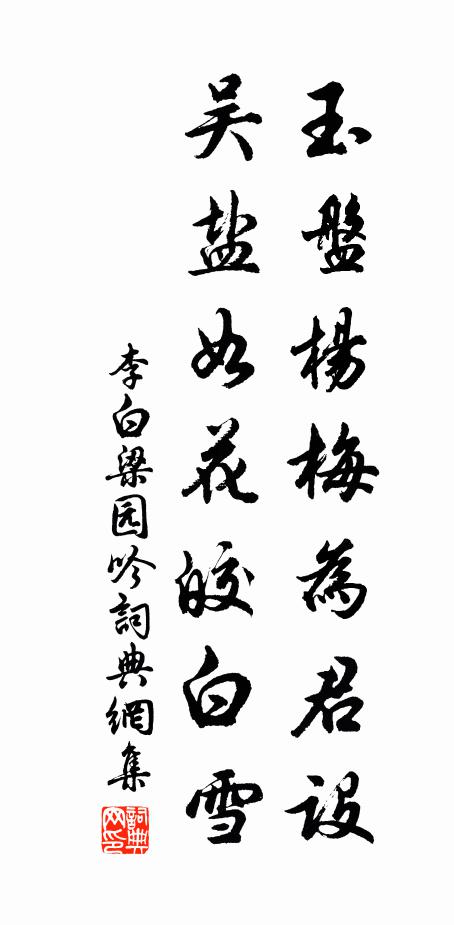 玉盤楊梅為君設
吴盐如花皎白雪
李白梁园吟詞典網集
詞典网印